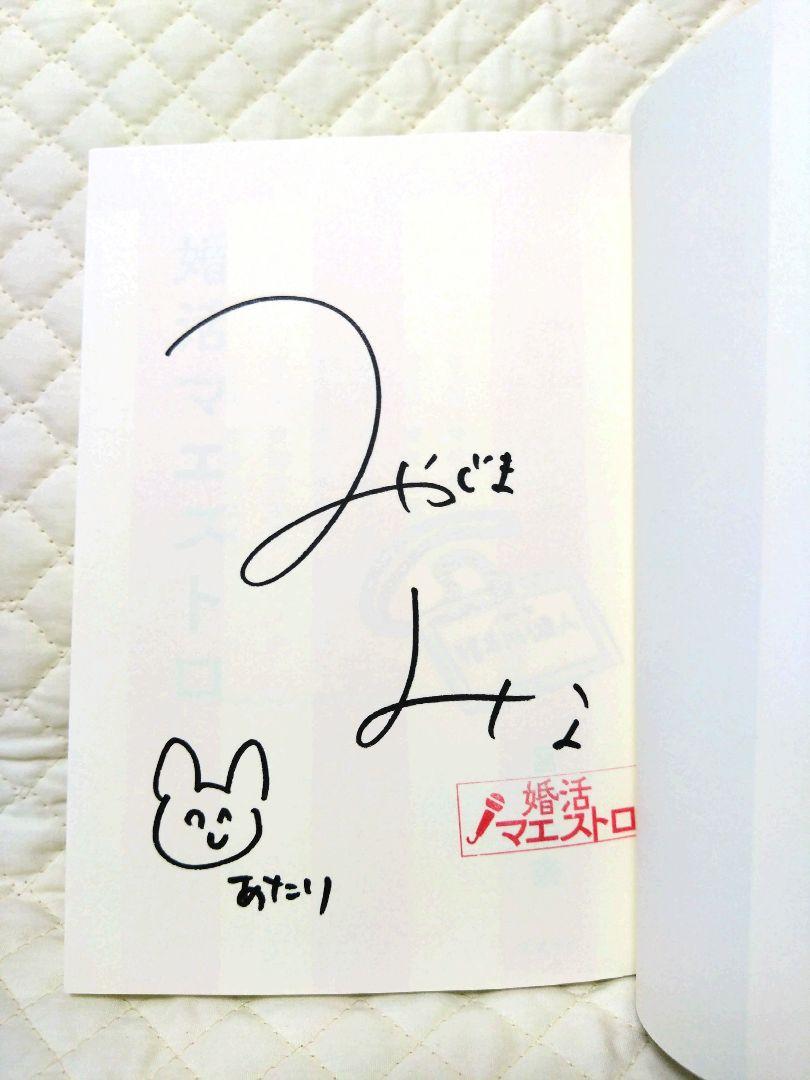 婚活マエストロ
みやじま
みな
婚活
マエストロ
あたり